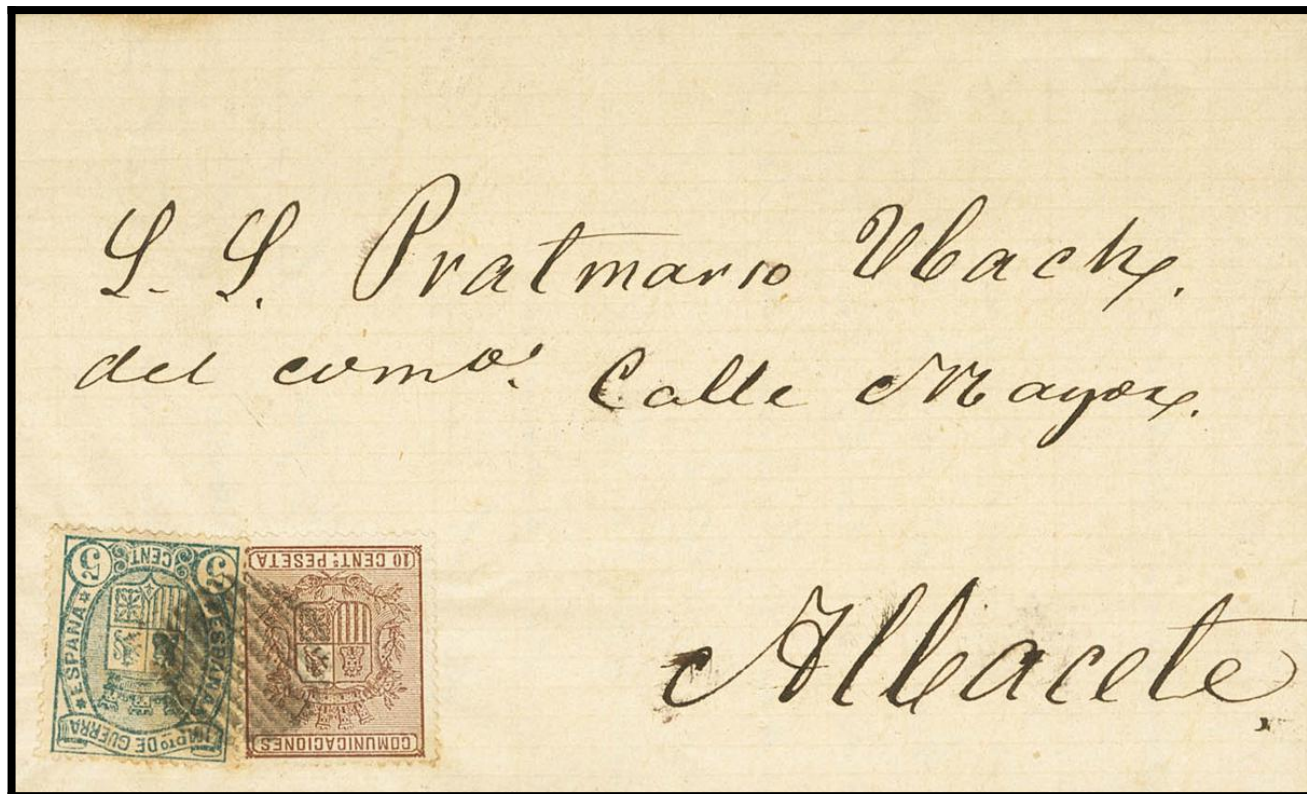 S. S. Pratmarso Ubach,
del como. Calle Mayor,
Albacete,
5 CENTS 5
* ESPAÑA *
IMPTO DE GUERRA
10 CENTS PESETA
COMUNICACIONES